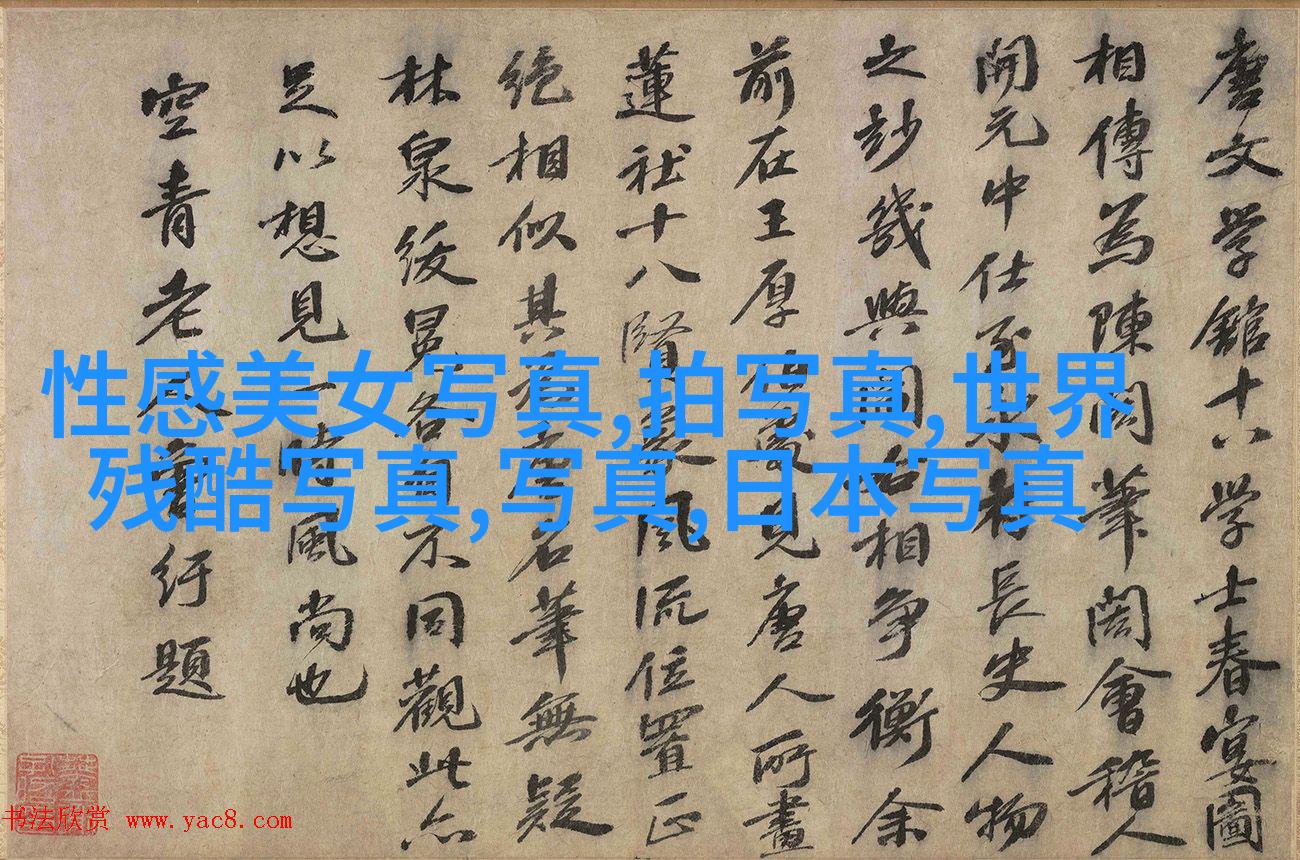 唐文学館十八学士春宴圖
相傳為陳閎筆閎會稽人
開元中仕至永府長史人物
之玅幾與閻相争衡余
前在王厚見唐人所畫
蓮社十八賢風流位置正
絶相似其為名筆無疑
林泉綬冕各自不同觀此亦
足以想見一時風尚也
空青老人曾紆題
性感美女写真,拍写真,世界
残酷写真,写真,日本写真
书法欣赏 www.yac8.com